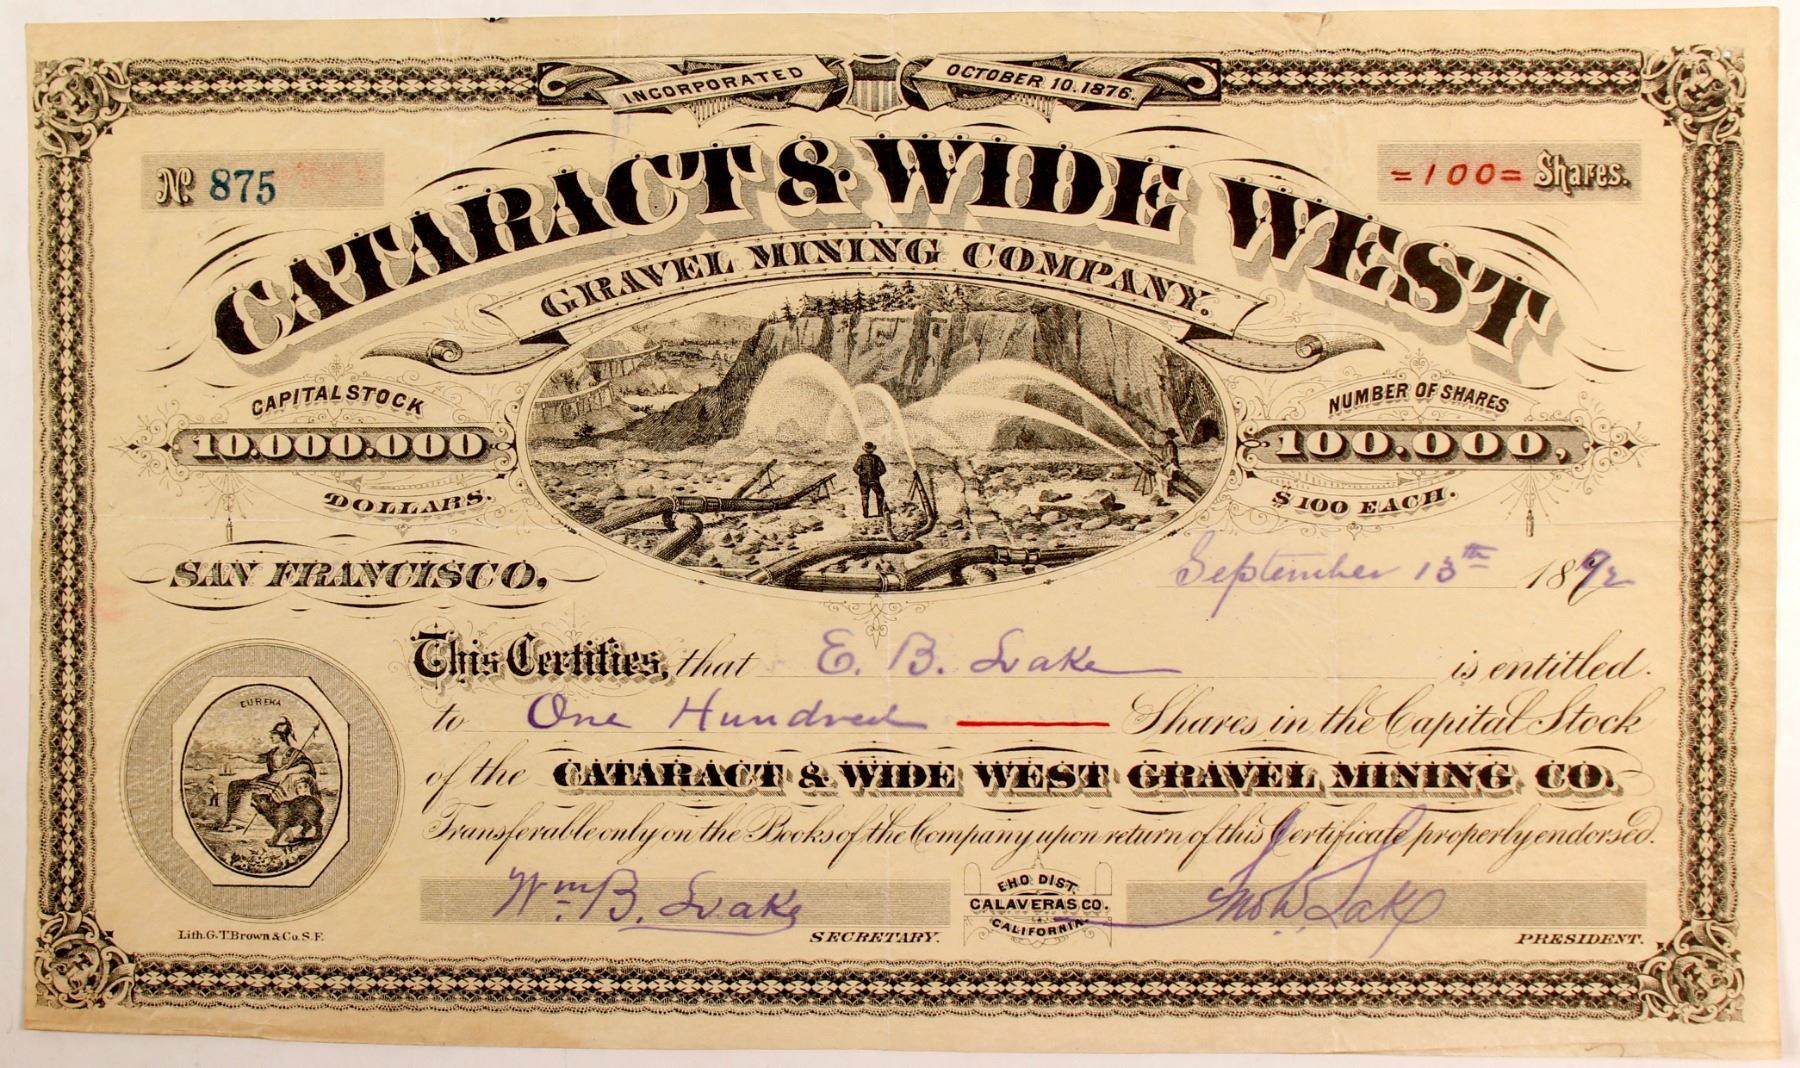 INCORPORATED OCTOBER 10.1876.
No. 875
=100= Shares.
CATARACT & WIDE WEST
GRAVEL MINING COMPANY.
CAPITAL STOCK
10.000.000
DOLLARS.
NUMBER OF SHARES
100.000,
$100 EACH.
SAN FRANCISCO,
September 13th 1892
This Certifies, that E. B. Lake is entitled
to One Hundred Shares in the Capital Stock
of the CATARACT & WIDE WEST GRAVEL MINING CO.
Transferable only on the Books of the Company upon return of this Certificate properly endorsed.
EUREKA
Wm B. Lake
SECRETARY.
EHO DIST.
CALAVERAS CO.
CALIFORNIA.
Jno W. Lake
PRESIDENT.
Lith. G.T. Brown & Co. S.F.